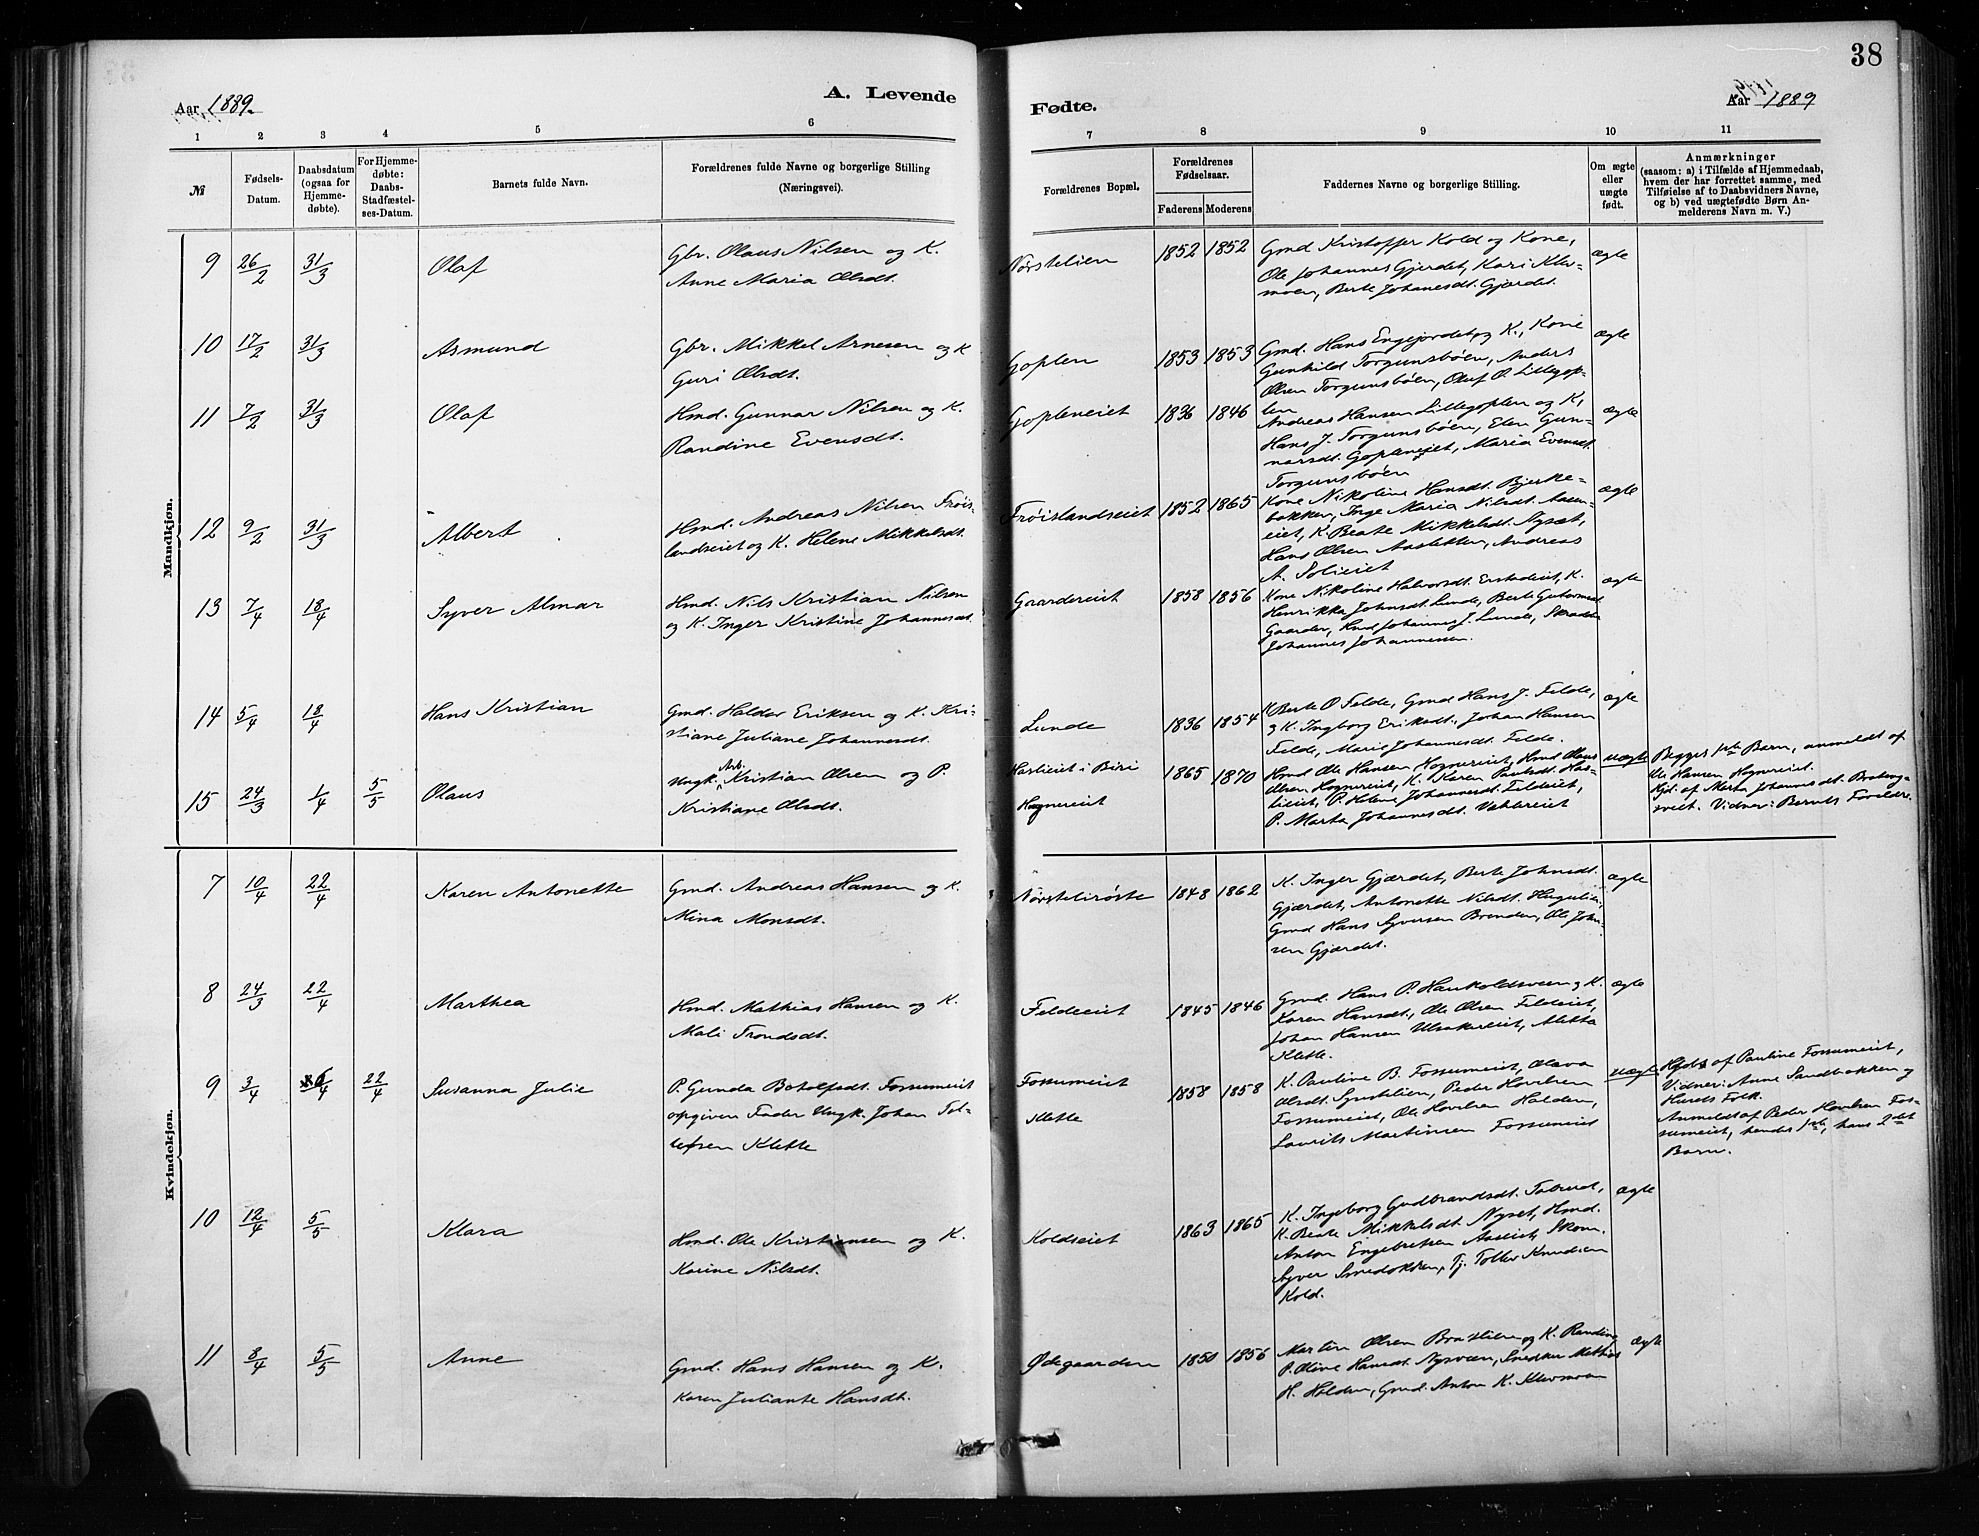 38
Aar 1889.
A. Levende
Fødte.
Aar 1889
1 2 3 4 5 6 7 8 9 10 11
№
Fødsels-
Datum.
Daabsdatum
(ogsaa for
Hjemme-
døbte).
For Hjemme-
døbte:
Daabs-
Stadfæstel-
ses-Datum.
Barnets fulde Navn.
Forældrenes fulde Navne og borgerlige Stilling
(Næringsvei).
Forældrenes Bopæl.
Forældrenes
Fødselsaar.
Faderens Moderens
Faddernes Navne og borgerlige Stilling.
Om ægte
eller
uægte
født.
Anmærkninger
(saasom: a) i Tilfælde af Hjemmedaab,
hvem der har forrettet samme, med
Tilføielse af to Daabsvidners Navne,
og b) ved uægtefødte Børn An-
melderens Navn m. V.)
Mandkjøn.
9 26/2 31/3 Olaf
Gbr. Olaus Nilsen og K.
Anne Maria Olsdt.
Nørstelien 1852 1852
Gmd Kristoffer Kold og Kone,
Ole Johannes Gjerdet, Kari Klev-
moen, Berte Johanesdt. Gjerdet.
ægte
10 17/2 31/3 Asmund
Gbr. Mikkel Arnesen og K
Guri Olsdt.
Goplen 1853 1853
Gmd. Hans Engejordet og K., Kone
Gunhild Torgunsbøen, Anders
Olsen Torgunsbøen, Oluf O. Lillegop-
len
ægte
11 7/2 31/3 Olaf
Hmd. Gunnar Nilsen og K.
Randine Evensdt.
Gopleneiet 1836 1846
Andreas Hansen Lillegoplen og K,
Hans J. Torgunsbøen, Elen Gun-
narsdt. Gopleneiet, Maria Evensdt.
Torgunsbøen
ægte
12 9/2 31/3 Albert
Hmd. Andreas Nilsen Frøis-
landseiet og K. Helene Mikkelsdt.
Frøislandseiet 1852 1865
Kone Nikoline Hansdt. Bjerke-
bakken, Inge Maria Nilsdt. Aasen-
eiet, K. Beate Mikkelsdt. Nysæt,
Hans Olsen Aasletten, Andreas
A. Solieiet
ægte
13 7/4 18/4 Syver Almar
Hmd. Nils Kristian Nilsen
og K. Inger Kristine Johannesdt.
Gaardereiet 1858 1856
Kone Nikoline Halvorsdt. Erstadeiet, K.
Henrikka Johnsdt. Lunde, Berte
Gaarder, Hmd Johannes J. Lunde,
Johannes Johannessen.
ægte
14 5/4 18/4 Hans Kristian
Gmd. Haldor Eriksen og K. Kri-
stiane Juliane Johannesdt.
Lunde 1836 1854
K Berte O Felde, Gmd Hans J. Felde,
og K. Ingborg Eriksdt. Johan Hansen
Felde, Marie Johannesdt. Felde.
ægte
15 24/3 1/4 5/5 Olaus
Ungk. Arb. Kristian Olsen og P.
Kristiane Olsdt.
Haslieiet i Biri
Hognereiet
1865 1870
Hmd Ole Hansen Hognereiet, Hmd Hans
Olsen Hognereiet, K. Karen Paulsdt. Has-
lieiet, P. Helene Johannesdt. Feldeiet,
P. Marta Johannesdt.
uægte
Begges 1ste Barn, anmeldt af
Ole Hansen Hognereiet.
Hjd. af Marta Johannesdt. Brateng-
sveet. Vidner: Barnets Forældre.
Kvindekjøn.
7 10/4 22/4 Karen Antonette
Gmd. Andreas Hansen og K.
Mina Monsdt.
Nørstelirøste 1848 1862
K. Inger Gjærdet, Berte Johnsdt.
Gjærdet, Antonette Nilsdt. Hugulien,
Gmd Hans Syversen Brenden, Ole John-
sen Gjærdet.
ægte
8 24/3 22/4 Marthea
Hmd. Mathias Hansen og K.
Mali Trondsdt.
Feldeeiet 1845 1846
Gmd. Hans P. Haukoldsveen og K.
Karen Hansdt., Ole Olsen Feldeiet,
Johan Hansen Ulsakereiet, Aletta
Klette.
ægte
9 3/4 22/4 Susanna Julie
P. Gunda Botolfsdt. Fossumeiet
opgiven Fader Ungk. Johan Tol-
lefsen Klette
Fossumeiet
Klette
1858 1858
K. Pauline B. Fossumeiet, Olava
Olsdt. Synstelien, Peder Hovelsen
Fossumeiet, Ole Hovelsen Holden,
Laurits Martinsen Fossumeiet
uægte
Hjdbt af Pauline Fossumeiet,
Vidner: Anne Sandbakken og
Husets Folk.
Anmeldt af Peder Hovelsen Fos-
sumeiet, hendes 1ste, hans 2det
Barn.
10 12/4 5/5 Klara
Hmd. Ole Kristiansen og K.
Karine Nilsdt.
Koldseiet 1863 1865
K. Ingeborg Gudbrandsdt.
K. Beate Mikkelsdt Nyset, Hmd.
Anton Engebretsen Aaseiet, Skom.
Syver Smedokken, Tj. Tollev Knudsen
Kold.
ægte
11 8/4 5/5 Anne
Gmd. Hans Hansen og K.
Karen Juliante Hansdt.
Ødegaarden 1850 1856
Martin Olsen Brostlien og K. Randine
P. Oline Hansdt. Nysveen, Snedker Mathias
H. Holden, Gmd. Anton K. Klevmoen
ægte